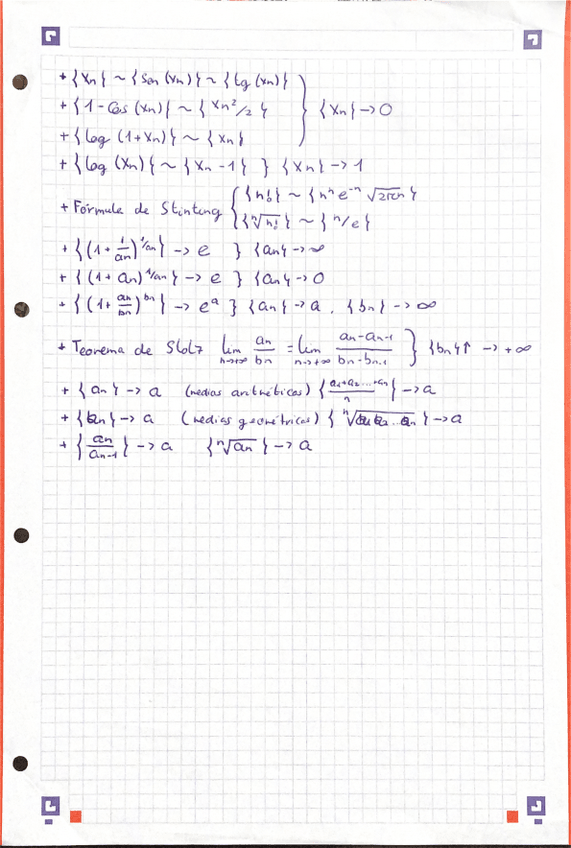 + {Xn} ~ {Sen (Xn)} ~ {tg (Xn)}
+ {1 - Cos (Xn)} ~ {Xn²/2} } {Xn} -> 0
+ {log (1+Xn)} ~ {Xn}
+ {log (Xn)} ~ {Xn - 1} } {Xn} -> 1
+ Fórmula de Stirling { {n!} ~ {nⁿ e⁻ⁿ √2πn}
{ⁿ√n!} ~ {n/e}
+ {(1 + 1/an)^1/an} -> e } {an} -> ∞
+ {(1 + an)^1/an} -> e } {an} -> 0
+ {(1 + an/bn)^bn} -> e^a } {an} -> a, {bn} -> ∞
+ Teorema de Stolz lim n->+∞ an/bn = lim n->+∞ an-an-1/bn-bn-1 } {bn}↑ -> +∞
+ {an} -> a (medias aritméticas) {a1+a2...+an/n} -> a
+ {an} -> a (medias geométricas) {ⁿ√a1a2...an} -> a
+ {an/an-1} -> a {ⁿ√an} -> a